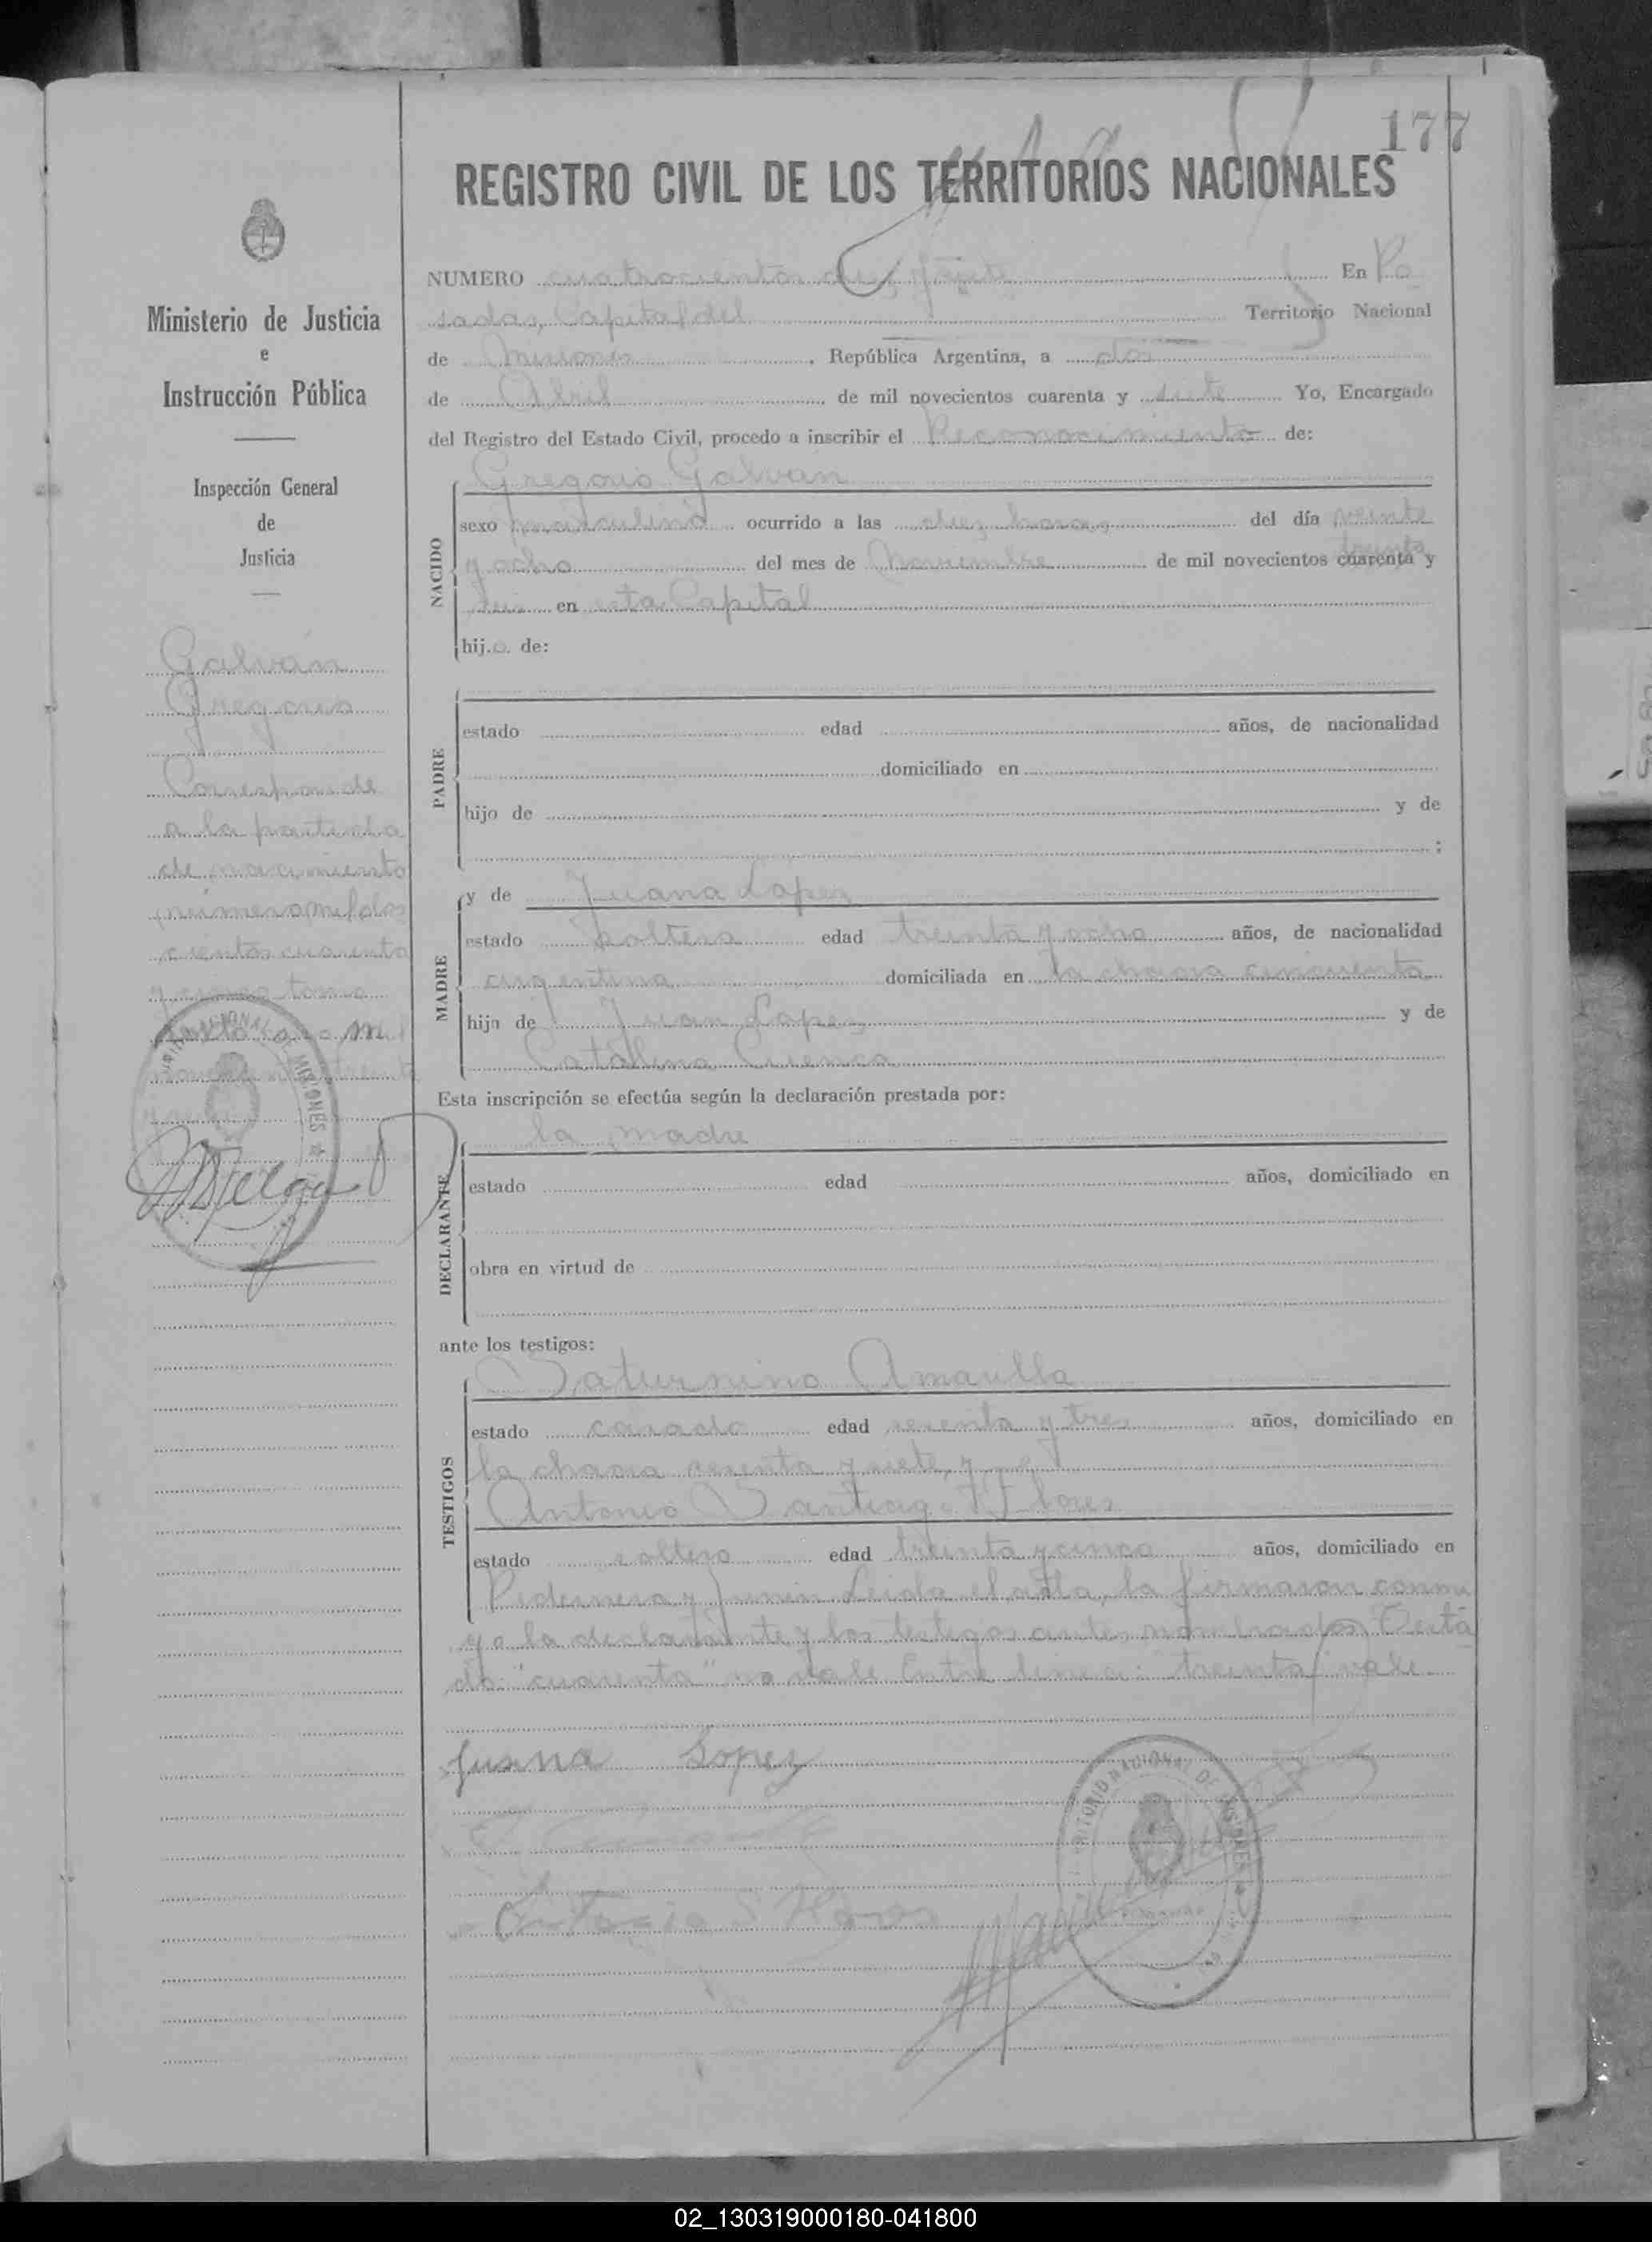 177
REGISTRO CIVIL DE LOS TERRITORIOS NACIONALES
Ministerio de Justicia
e
Instrucción Pública
Inspección General
de
Justicia
Galván
Gregorio
Corresponde
a la partida
de nacimiento
número mil dos
cientos cuarenta
y cinco tomo
NUMERO cuatrocientos diez y siete En Po
sadas, Capital del Territorio Nacional
de Misiones, República Argentina, a dos
de Abril de mil novecientos cuarenta y siete Yo, Encargado
del Registro del Estado Civil, procedo a inscribir el Reconocimiento de:
Gregorio Galván
NACIDO
sexo masculino ocurrido a las diez horas del día veinte
treinta
y ocho del mes de Noviembre de mil novecientos cuarenta y
seis en esta Capital
hijo de:
PADRE
estado edad años, de nacionalidad
domiciliado en
hijo de y de
;
MADRE
y de Juana Lopez
estado soltera edad treinta y ocho años, de nacionalidad
argentina domiciliada en la chacra cincuenta
hija de Juan Lopez y de
Catalina Cuenca
Esta inscripción se efectúa según la declaración prestada por:
la madre
DECLARANTE
estado edad años, domiciliado en
obra en virtud de
ante los testigos:
TESTIGOS
Saturnino Amarilla
estado casado edad sesenta y tres años, domiciliado en
la chacra sesenta y siete, y
Antonio Santiago Flores
estado soltero edad treinta y cinco años, domiciliado en
Pedernera y Junin Leida el acta, la firmaron conmi
go la declarante y los testigos antes nombrados Testa
do: "cuarenta" no vale Entre linea: "treinta" vale.
Juana Lopez
Antonio S Flores
TERRITORIO NACIONAL DE MISIONES
02_130319000180-041800